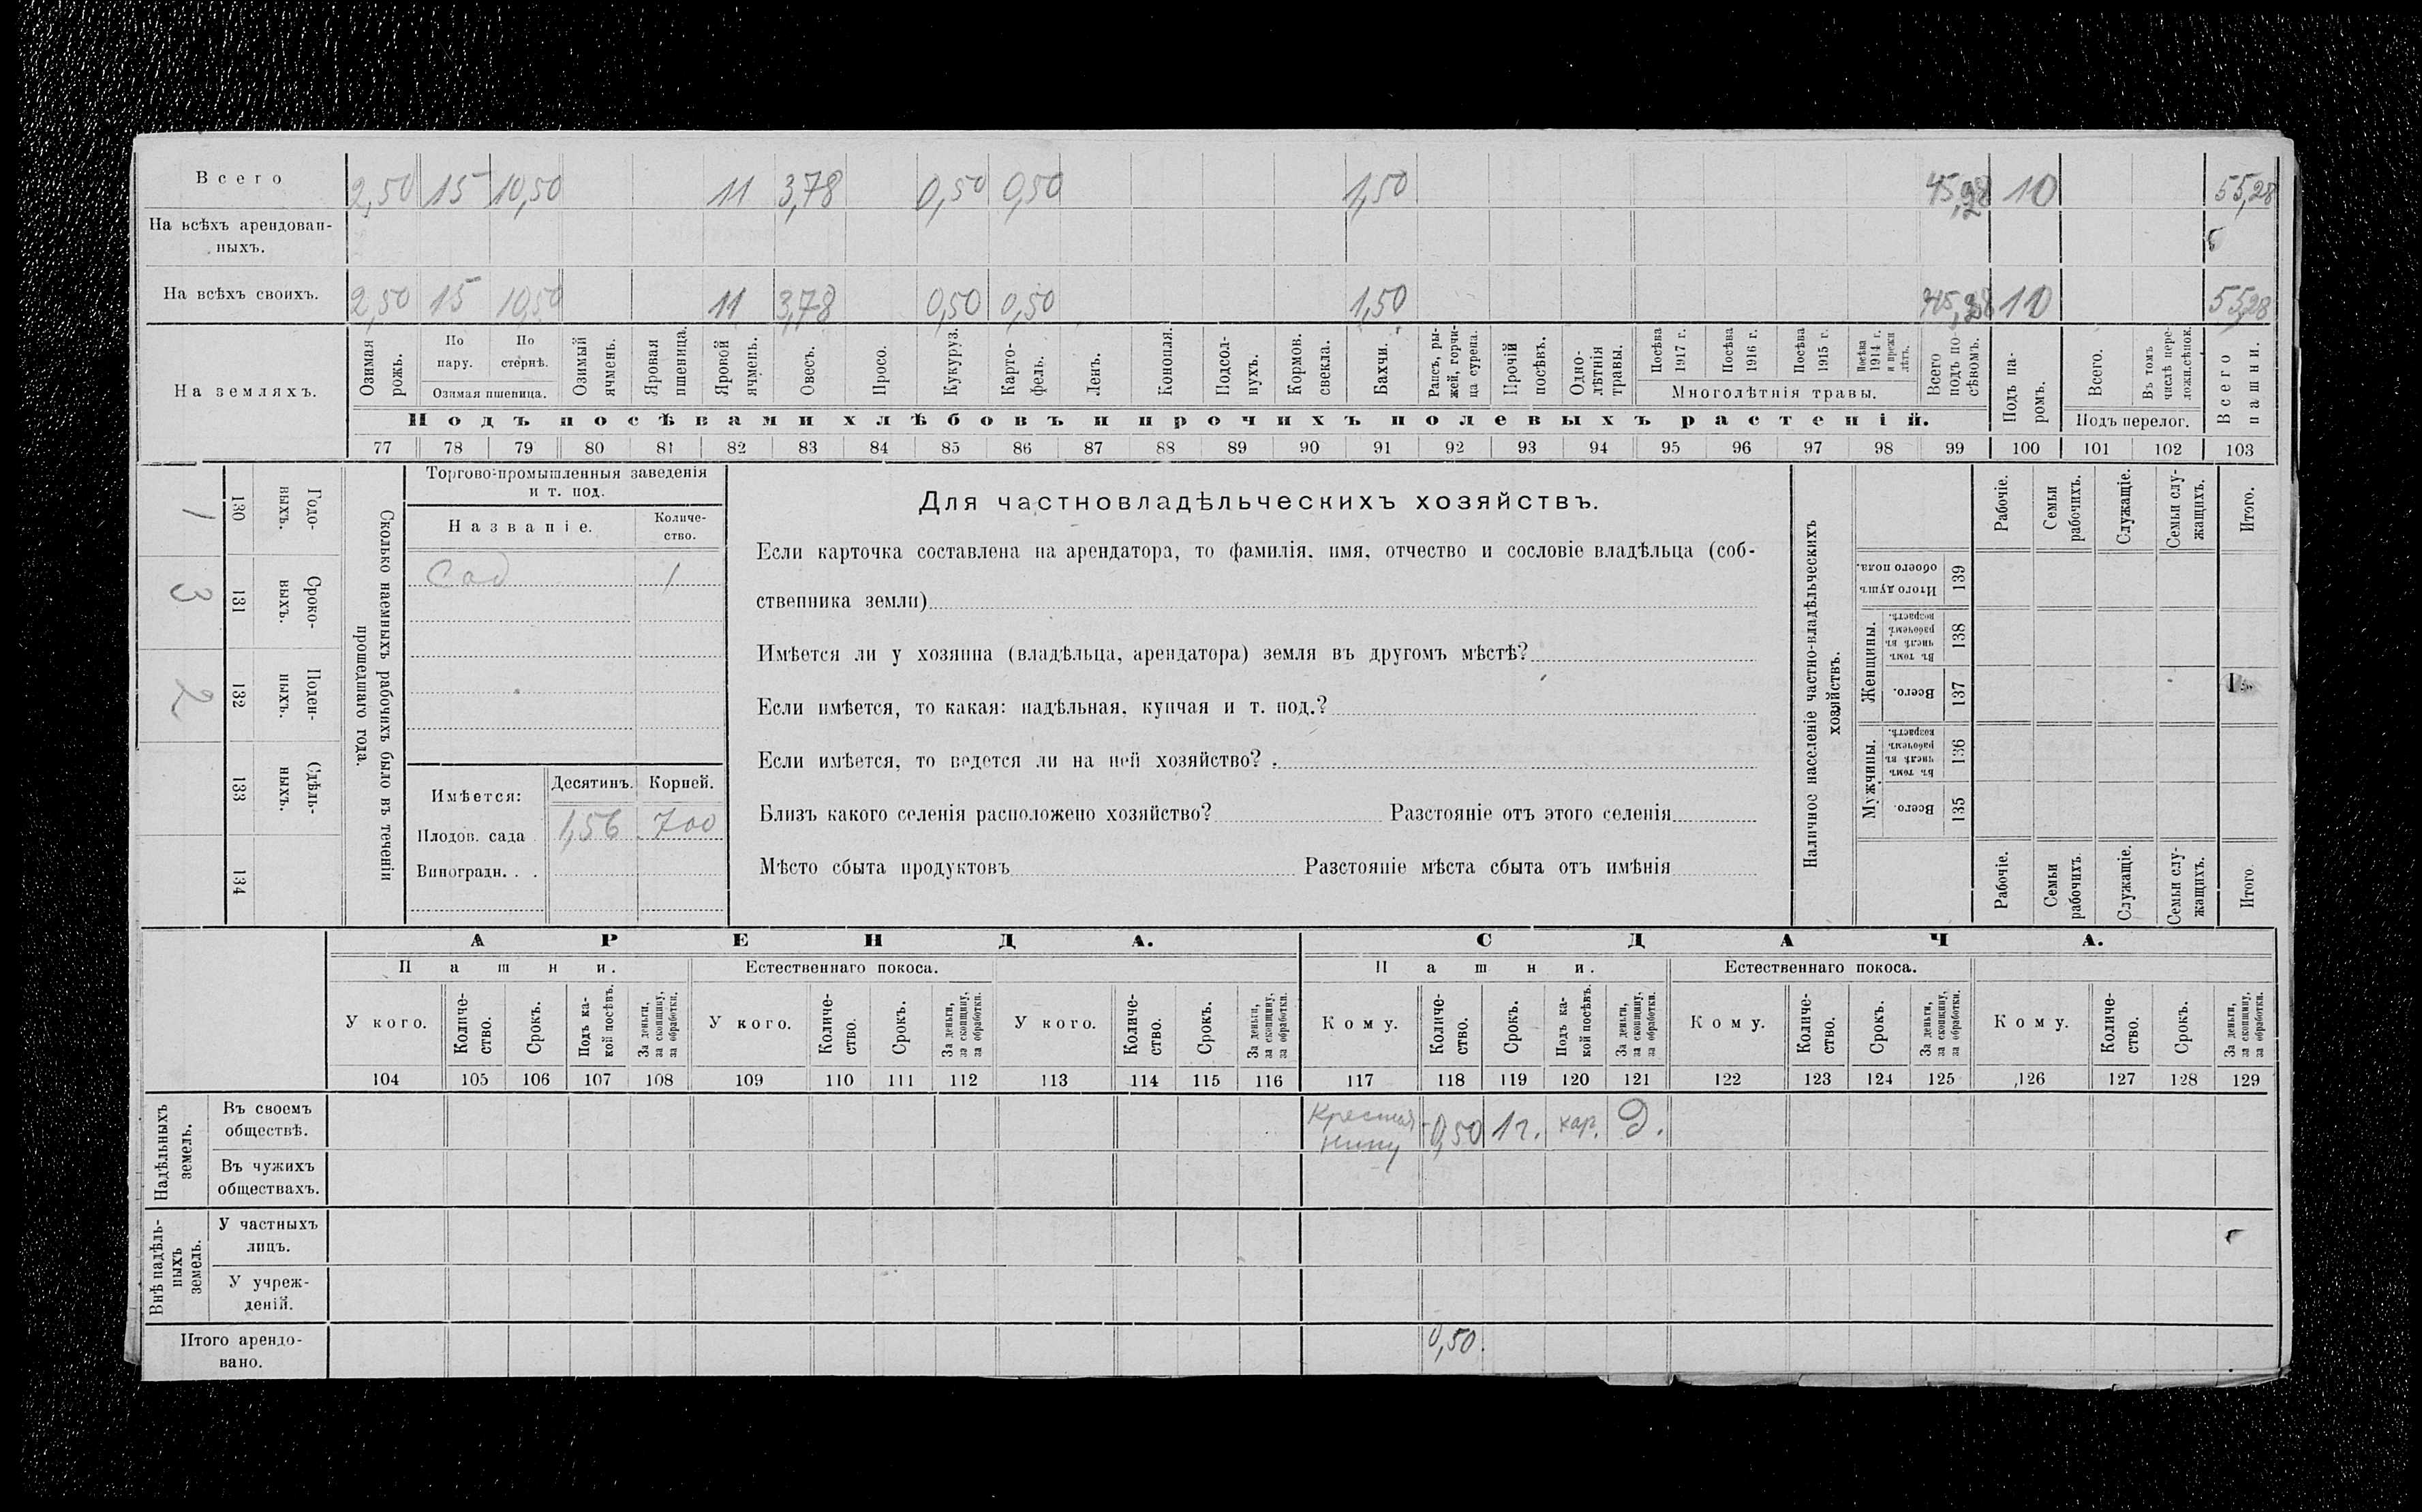 Всего 2,50 15 10,50 11 3,78 0,50 0,50 1,50 45,28 10 55,28
На всѣхъ арендован-
ныхъ.
На всѣхъ своихъ. 2,50 15 10,50 11 3,78 0,50 0,50 1,50 45,28 10 55,28
На земляхъ. Озимая рожь. По пару. По стернѣ. Озимая пшеница. Озимый ячмень. Яровая пшеница. Яровой ячмень. Овесъ. Просо. Кукуруз. Карто-фель. Ленъ. Конопля. Подсол-нухъ. Кормов. свекла. Бахчи. Рапсъ, ры-жей, горчи-ца сурепа. Прочій посѣвъ. Одно-лѣтнія травы. Посѣва 1917 г. Посѣва 1916 г. Посѣва 1915 г. Посѣва 1914 г. и прежн лѣтъ. Многолѣтнія травы. Всего подъ по-сѣвомъ. Подъ па-ромъ. Всего. Въ томъ числѣ пере-ложн.сѣнок. Подъ перелог. Всего пашни.
Подъ посѣвами хлѣбовъ и прочихъ полевыхъ растеній.
77 78 79 80 81 82 83 84 85 86 87 88 89 90 91 92 93 94 95 96 97 98 99 100 101 102 103
Сколько наемныхъ рабочихъ было въ теченіи
прошедшаго года.
Годо-ныхъ. 130 1
Сроко-выхъ. 131 3
Поден-ныхъ. 132 2
Сдѣль-ныхъ. 133
134
Торгово-промышленныя заведенія
и т. под.
Названіе. Количе-ство.
Сад 1
Имѣется: Десятинъ. Корней.
Плодов. сада 1,56 700
Виноградн. . .
Для частновладѣльческихъ хозяйствъ.
Если карточка составлена на арендатора, то фамилія, имя, отчество и сословіе владѣльца (соб-
ственника земли)
Имѣется ли у хозяина (владѣльца, арендатора) земля въ другомъ мѣстѣ?
Если имѣется, то какая: надѣльная, купчая и т. под.?
Если имѣется, то ведется ли на ней хозяйство?
Близъ какого селенія расположено хозяйство? Разстояніе отъ этого селенія
Мѣсто сбыта продуктовъ Разстояніе мѣста сбыта отъ имѣнія
Наличное населеніе частно-владѣльческихъ
хозяйствъ.
Рабочіе. Семьи рабочихъ. Служащіе. Семьи слу-жащихъ. Итого.
Итого душъ обоего пола. 139
Женщины. Въ томъ числѣ въ рабочемъ возрастѣ. 138
Всего. 137
Мужчины. Въ томъ числѣ въ рабочемъ возрастѣ. 136
Всего. 135
Рабочіе. Семьи рабочихъ. Служащіе. Семьи слу-жащихъ. Итого.
АРЕНДА. СДАЧА.
Пашни. Естественнаго покоса. Пашни. Естественнаго покоса.
У кого. Количе-ство. Срокъ. Подъ ка-кой посѣвъ. За деньги, за скопщину, за обработки. У кого. Количе-ство. Срокъ. За деньги, за скопщину, за обработки. У кого. Количе-ство. Срокъ. За деньги, за скопщину, за обработки. Кому. Количе-ство. Срокъ. Подъ ка-кой посѣвъ. За деньги, за скопщину, за обработки. Кому. Количе-ство. Срокъ. За деньги, за скопщину, за обработки. Кому. Количе-ство. Срокъ. За деньги, за скопщину, за обработки.
104 105 106 107 108 109 110 111 112 113 114 115 116 117 118 119 120 121 122 123 124 125 126 127 128 129
Надѣльныхъ земель.
Въ своемъ обществѣ. Крестья-нину 0,50 1 г. кар. Д.
Въ чужихъ
обществахъ.
Внѣ надѣль-ныхъ земель.
У частныхъ
лицъ.
У учреж-
деній.
Итого арендо-
вано. 0,50